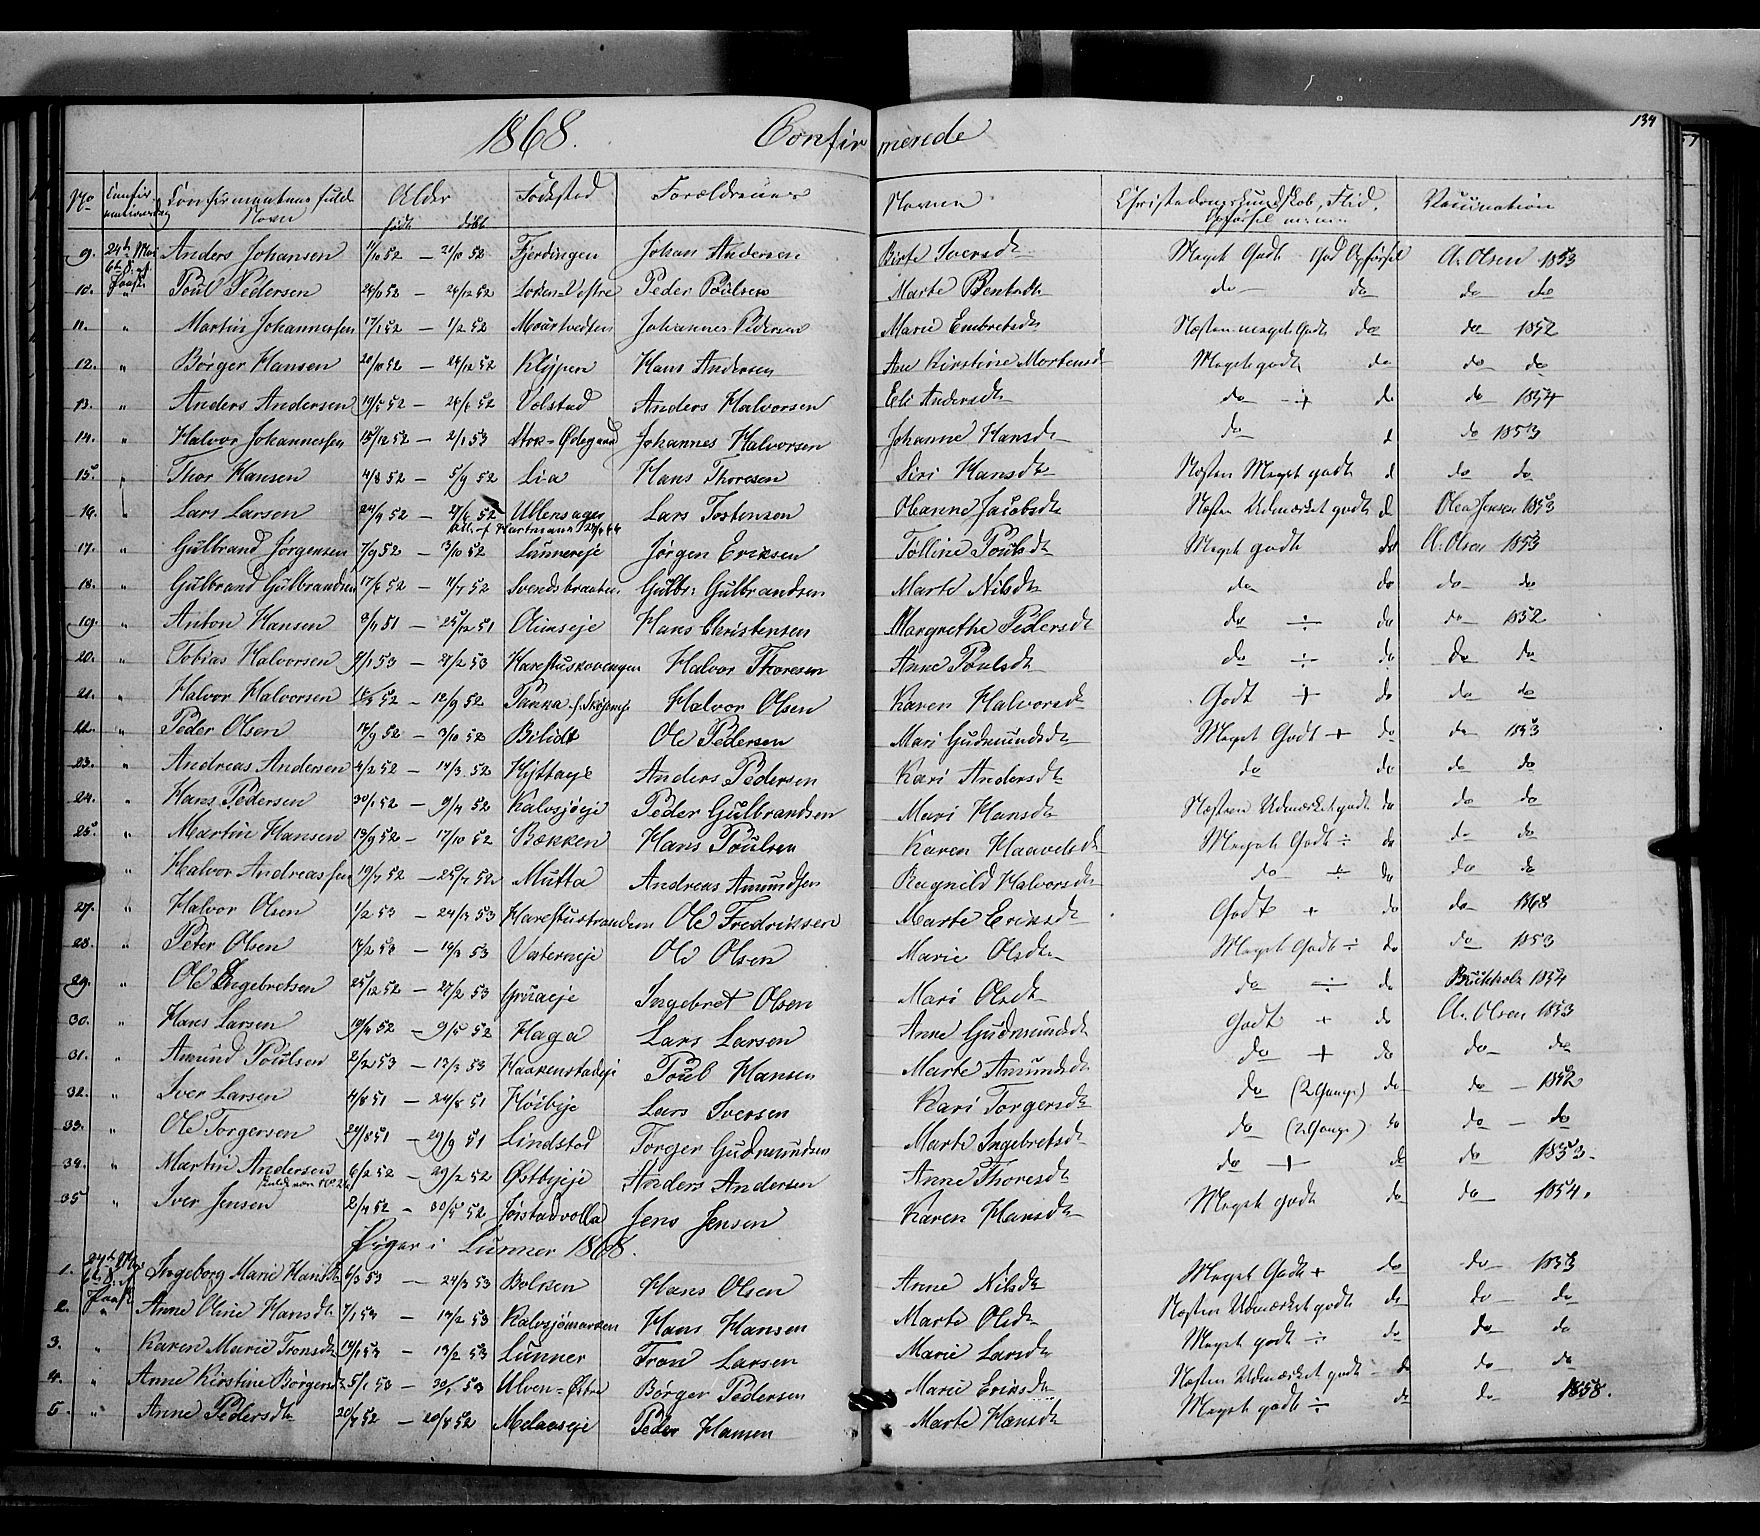 134
1868. Confirmerede
No Confirmationsdag Confirmantens fulde Navn Alder født døbt Fødested Forældrenes Navne Christendomskundskab, Flid, Opførsel Vaccination
9. 24de Mai 6te S. e. Paaske Anders Johansen 1/10 52 — 21/10 52 Fjerdingen Johan Andersen Birte Iversdtr Meget Godt God Opførsel A. Olsen 1853
10. " Poul Pedersen — 26/12 52 Loken Vestre Peder Poulsen Marte Bentsdtr do do do do
11. " Martin Johannessen 17/1 52 — 1/2 52 Johannes Pedersen Marie Embretsdtr Næsten meget Godt do do 1852
12. " Børger Hansen 20/10 52 — 26/12 52 Klÿpen Hans Andersen Ane Kirstine Mortensd Meget godt do do do
13. " Anders Andersen 19/5 52 — 52 Volstad Anders Halvorsen Eli Andersdtr do + d do 1854
14. " Halvor Johannessen 15/12 52 — 2/1 53 Stok-Ødegaard Johannes Halvorsen Johanne Hansdtr do d do 1853
15. " Thor Hansen 4/8 52 — 5/9 52 Lia Hans Thoresen Siri Hansdtr Næsten Meget godt d do do
16. " Lars Larsen 52 — 52 Ullensager Lars Tostensen Oleanne Jacobsdtr Næsten Udmærket godt d Olea Jensen 1853
17. " Gulbrand Jørgensen 7/9 52 — 3/10 52 Lunnereje Jørgen Eriksen Tolline Poulsdtr Meget godt do A. Olsen 1853
18. " Gulbrand Gulbrandsen 17/6 52 — 11/7 52 Svendsbraaten Gulbr: Gulbrandsen Marte Nilsdtr do do do do
19. " Anton Hansen 8/11 51 — 25/12 51 Hans Christensen Margrethe Pedersdtr do ÷ do do 1852
20. " Tobias Halvorsen 53 — 27/2 53 Harestuskovengen Halvor Thoresen Anne Poulsdtr do ÷ do do do
21. " Halvor Halvorsen 52 — 12/9 52 Halvor Olsen Karen Halvorsdtr Godt + do do do
22. " Peder Olsen 52 — 3/10 52 Bilidt Ole Pedersen Mari Gudmundsdtr Meget Godt + do do 1853
23. " Andreas Andersen 4/2 52 — 14/3 52 Hyttaeje Anders Pedersen Kari Andersdtr do do do do
24. " Hans Pedersen 30/1 52 — 9/4 52 Kalvsjøeje Peder Gulbrandsen Mari Hansdtr Næsten Udmærket godt do do do
25. " Martin Hansen 13/9 52 — 17/10 52 Bækken Hans Poulsen Karen Haavelsdtr Meget Godt ÷ do do do
" Halvor Andreassen 52 — 52 Mutta Andreas Amundsen Ragnild Halvorsdtr do ÷ do do do
27. " Halvor Olsen 1/2 53 — 24/3 53 Harestustranden Ole Fredriksen Marte Eriksdtr Godt + do do 1868
28. " Peter Olsen 53 — 53 Ole Olsen Marie Olsdtr Meget Godt ÷ do do 1853
29. " Ole Engebretsen 25/12 52 — 27/2 53 Gruaeje Ingebret Olsen Mari Olsdtr do ÷ do Buchholz 1854
30. " Hans Larsen 52 — 9/5 52 Haga Lars Larsen Anne Gudmundsdtr Godt + do A. Olsen 1853
31. " Amund Poulsen 2/2 53 — 13/3 53 Haakenstadeje Poul Hansen Marte Amundsdtr do + do do do
32. " Iver Larsen 4/8 51 — 24/8 51 Høibyeje Lars Iversen Kari Torgersdtr do (2 Gange) do do 1852
33. " Ole Torgersen 51 — 51 Lindstad Torger Gudmundsen Marte Ingebretsdtr do (2 Gange) do do do
34. " Martin Andersen 6/2 52 — 29/2 52 Østbyeje Anders Andersen Anne Thoresdtr do + do do 1853.
35 " Iver Jensen 2/4 52 — 30/5 52 Jens Jensen Karen Hansdtr Meget Godt do do 1854.
Piger i Lunner 1868.
1. 24de Mai 6te S. e. Paaske Ingeborg Marie Hansdtr 6/3 53 — 24/3 53 Bolrsen Hans Olsen Anne Nilsdtr Meget Godt + do do 1853
2. " Anne Oline Hansdtr 7/1 53 — 53 Kalvsjømarken Hans Hansen Marte Olsdtr Næsten Udmærket godt do do do
3. " Karen Marie Tronsdtr 53 — 13/2 53 Lunner Tron Larsen Marie Larsdtr Meget godt ÷ do do do
4. " Anne Kirstine Børgersd 5/1 53 — 53 Ulven-Østre Børger Pedersen Marie Eriksdtr Næsten Udmærket godt do do do
5. " Anne Pedersdtr 52 — 52 Melaaseje Peder Hansen Marte Hansdtr Meget godt ÷ do do 1858.